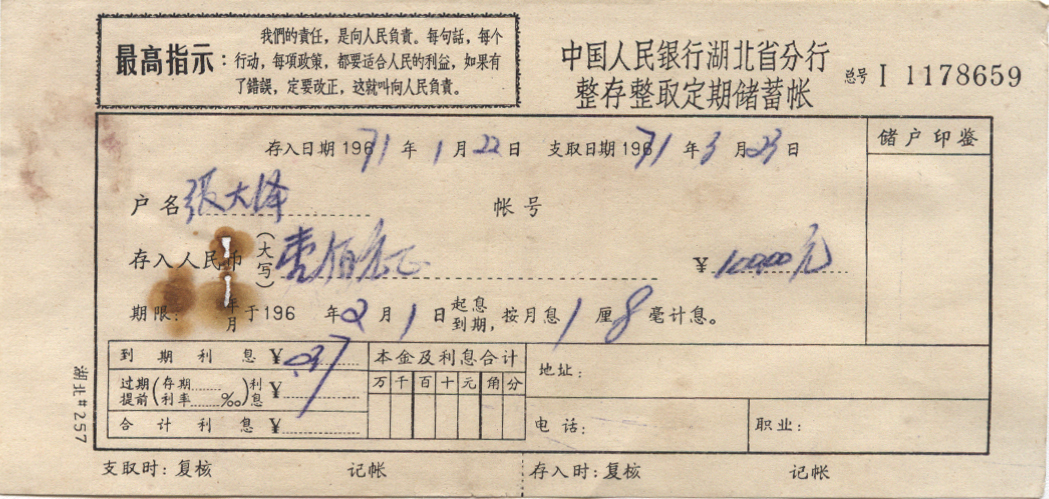 最高指示:
我們的責任，是向人民負責。每句話，每个
行动，每項政策，都要适合人民的利益，如果有
了錯誤，定要改正，这就叫向人民負責。
中国人民银行湖北省分行
整存整取定期储蓄帐
总号 I 1178659
存入日期196 71 年 1 月 22 日 支取日期196 71 年 3 月 23 日
储户印鉴
户名 張大泽 帐号
存入人民币(大写) 壹佰元正 ¥ 100.00元
期限: 年月 于196 年 2 月 1 日起息到期，按月息 1 厘 8 毫计息。
到期利息 ¥ .37 本金及利息合计 地址:
过期提前(存期......利率......‰)利息 ¥ 万千百十元角分
合计利息 ¥ 电话: 职业:
湖北#257
支取时:复核 记帐 存入时:复核 记帐